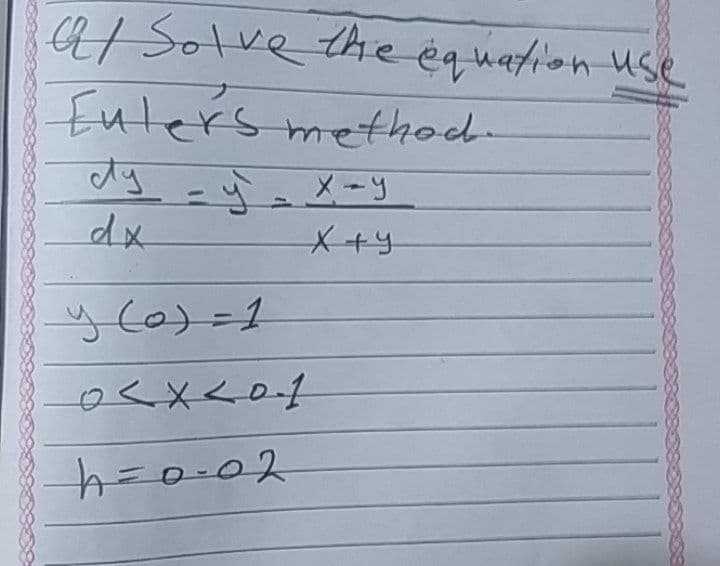 Q/ Solve the equation use
Euler's method.
dy/dx = y' = x-y/x+y
y(0)=1
0<x<0.1
h=0.02